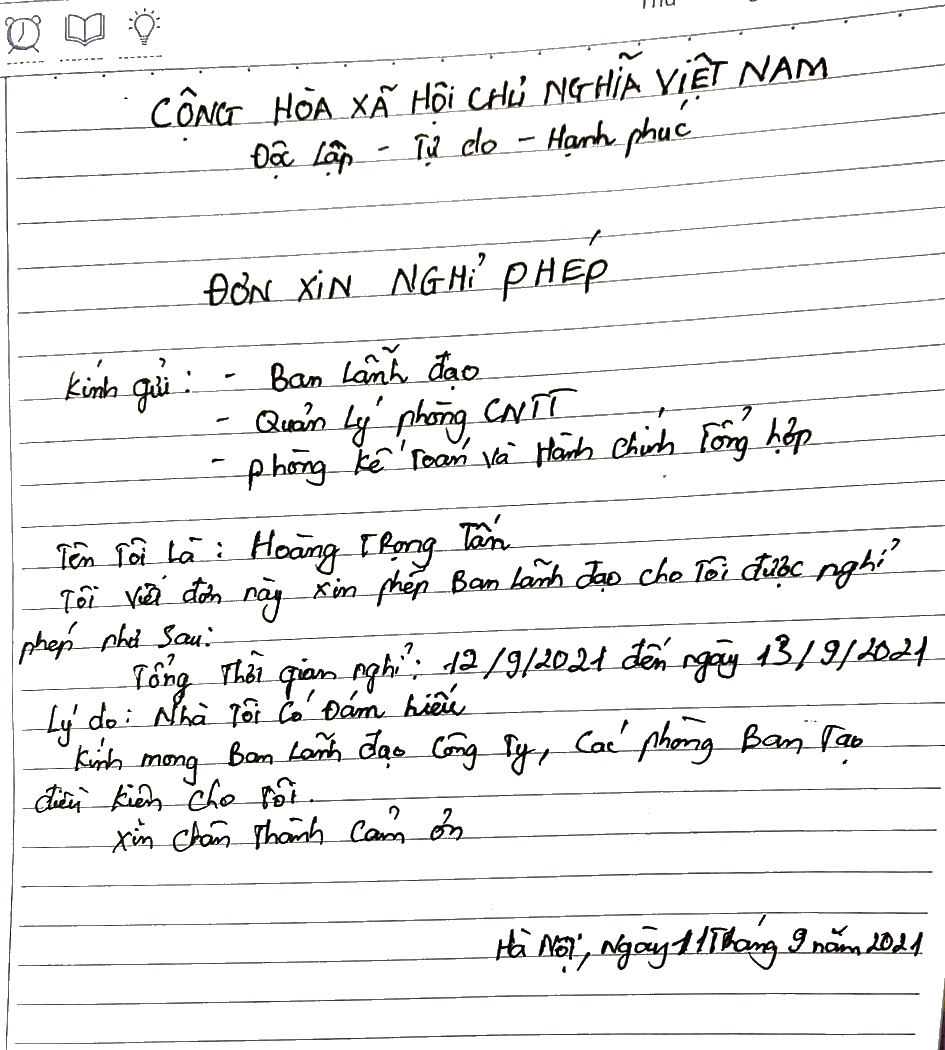 CỘNG HÒA XÃ HỘI CHỦ NGHĨA VIỆT NAM
Độc lập - Tự do - Hạnh phúc
ĐƠN XIN NGHỈ PHÉP
Kính gửi: - Ban Lãnh đạo
- Quản lý phòng CNTT
- Phòng kế Toán và Hành chính Tổng hợp
Tên Tôi Là: Hoàng TRọng Tấn
Tôi viết đơn này xin phép Ban Lãnh đạo cho Tôi được nghỉ
phép như sau:
Tổng Thời gian nghỉ: 12/9/2021 đến ngày 13/9/2021
Lý do: Nhà Tôi Có Đám hiếu
Kính mong Ban Lãnh đạo Công Ty, Các phòng Ban Tạo
điều kiện cho Tôi.
Xin chân Thành Cảm ơn
Hà Nội, Ngày 11 Tháng 9 năm 2021